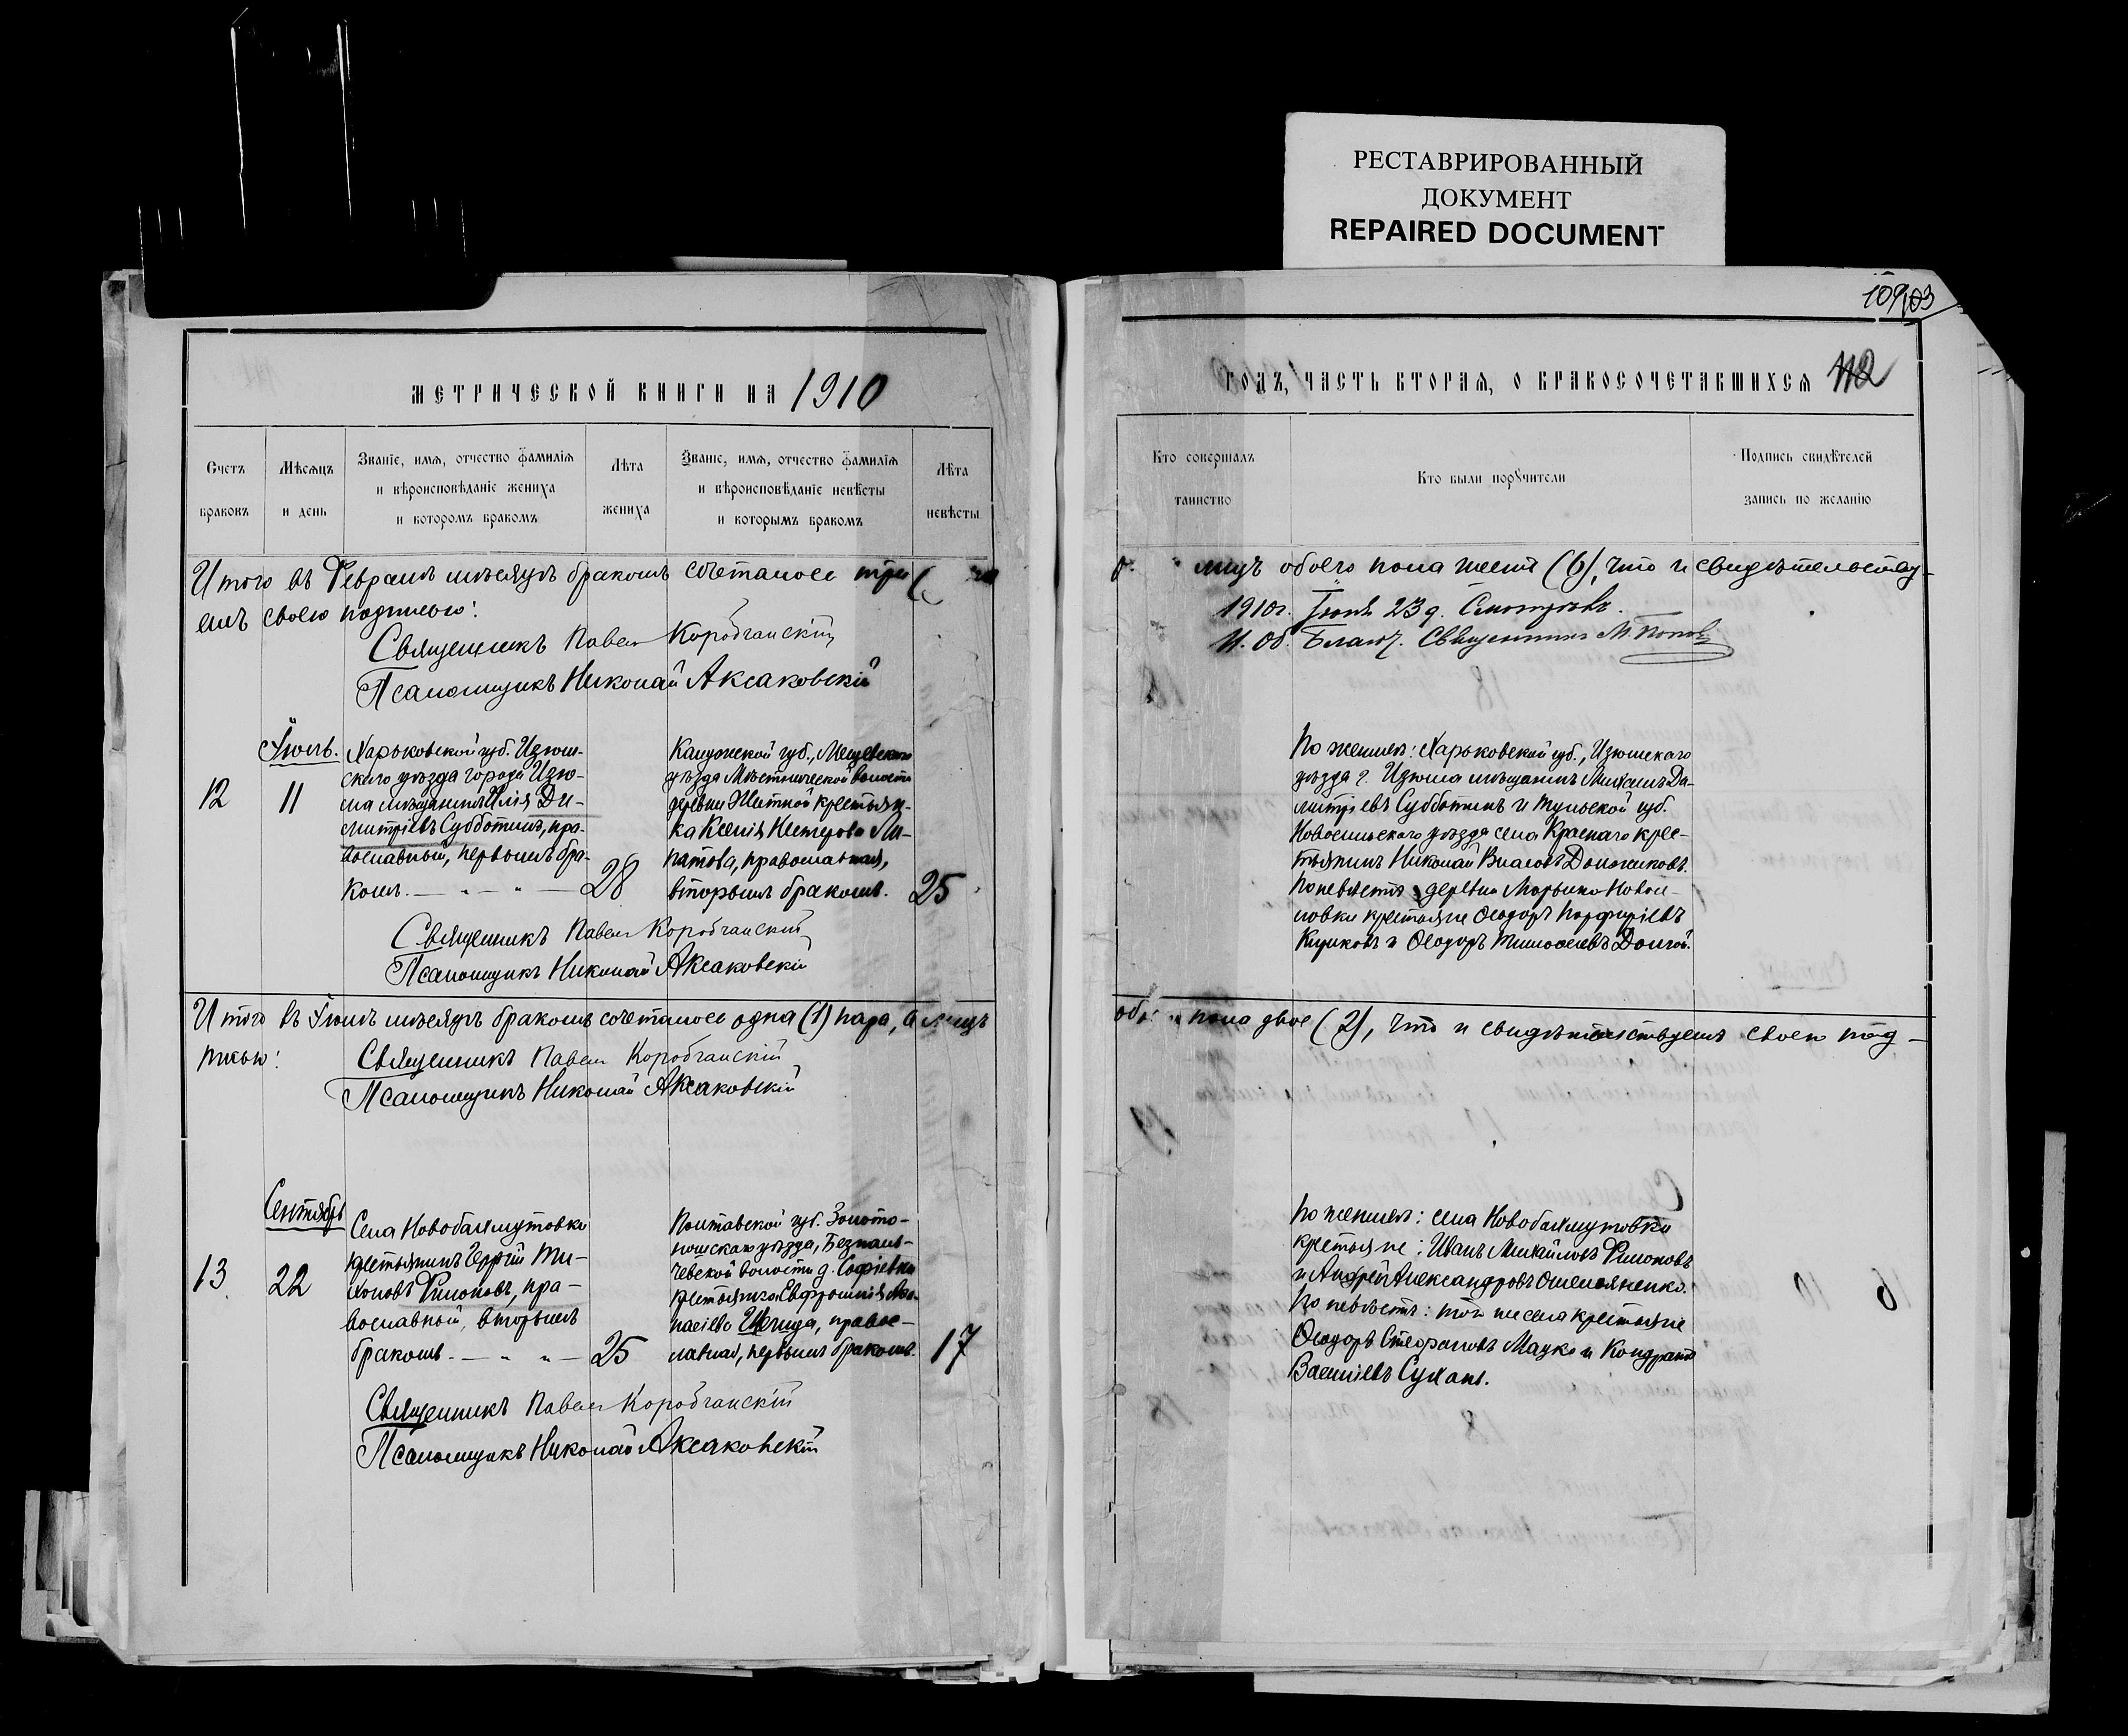 РЕСТАВРИРОВАННЫЙ
ДОКУМЕНТ
REPAIRED DOCUMENT
109 103
МЕТРИЧЕСКОЙ КНИГИ НА 1910
Счетъ
браковъ
Мѣсяцъ
и день
Званіе, имя, отчество фамилія
и вѣроисповѣданіе жениха
и которомъ бракомъ
Лѣта
жениха
Званіе, имя, отчество фамилія
и вѣроисповѣданіе невѣсты
и которымъ бракомъ
Лѣта
невѣсты
Итого въ Февралѣ мѣсяцѣ бракомъ сочеталось три
емъ своею подписью:
Священникъ Павелъ Коробчанскій
Псаломщикъ Николай Аксаковскій
12
Іюль.
11
Харьковской губ. Изюм-
скаго уѣзда города Изю-
ма мѣщанинъ Илія Ди-
митріевъ Субботинъ, пра-
вославный, первымъ бра-
комъ.
28
Калужской губ., Мещевскаго
уѣзда Мѣстнической волости
деревни Житной крестьян-
ка Ксенія Нестерова Ли-
патова, православная,
вторымъ бракомъ.
25
Священникъ Павелъ Коробчанскій
Псаломщикъ Николай Аксаковскій
Итого въ Іюлѣ мѣсяцѣ бракомъ сочеталось одна (1) пара, а лицъ
писью:
Священникъ Павелъ Коробчанскій
Псаломщикъ Николай Аксаковскій
13
Сентябрь
22
Села Новобахмутовки
крестьянинъ Сергій Ти-
хоновъ Филоновъ, пра-
вославный, вторымъ
бракомъ.
25
Полтавской губ. Золото-
ношскаго уѣзда, Безпаль-
чевской волости д. Софіевки
крестьянка Евфросинія Аѳа-
насіева Шегида, правос-
лавная, первымъ бракомъ.
17
Священникъ Павелъ Коробчанскій
Псаломщикъ Николай Аксаковскій
ГОДЪ, ЧАСТЬ ВТОРАЯ, О БРАКОСОЧЕТАВШИХСЯ 112
Кто совершалъ
таинство
Кто были поручители
Подпись свидѣтелей
запись по желанію
лицъ обоего пола шесть (6), что и свидѣтельству-
1910г. Іюнь 23 д. Смотрѣлъ.
И. об. Благоч. Священникъ М. Поповъ
По женихѣ: Харьковской губ., Изюмскаго
уѣзда г. Изюма мѣщанинъ Михаилъ Ди-
митріевъ Субботинъ и Тульской губ.
Новосильскаго уѣзда села Краснаго крес-
тьянинъ Николай Власовъ Долженковъ.
По невѣстѣ деревни Марьино Новосе-
ловки крестьяне Ѳеодоръ Порфиріевъ
Куликовъ и Ѳеодоръ Тимоѳеевъ Долгой.
обоего пола двое (2), что и свидѣтельствуемъ своею под-
По женихѣ: села Новобахмутовки
крестьяне: Иванъ Михайловъ Филоновъ
и Андрей Александровъ Омельяненко.
По невѣстѣ: того же села крестьяне
Ѳеодоръ Стефановъ Мацко и Кондратъ
Василіевъ Суханъ.